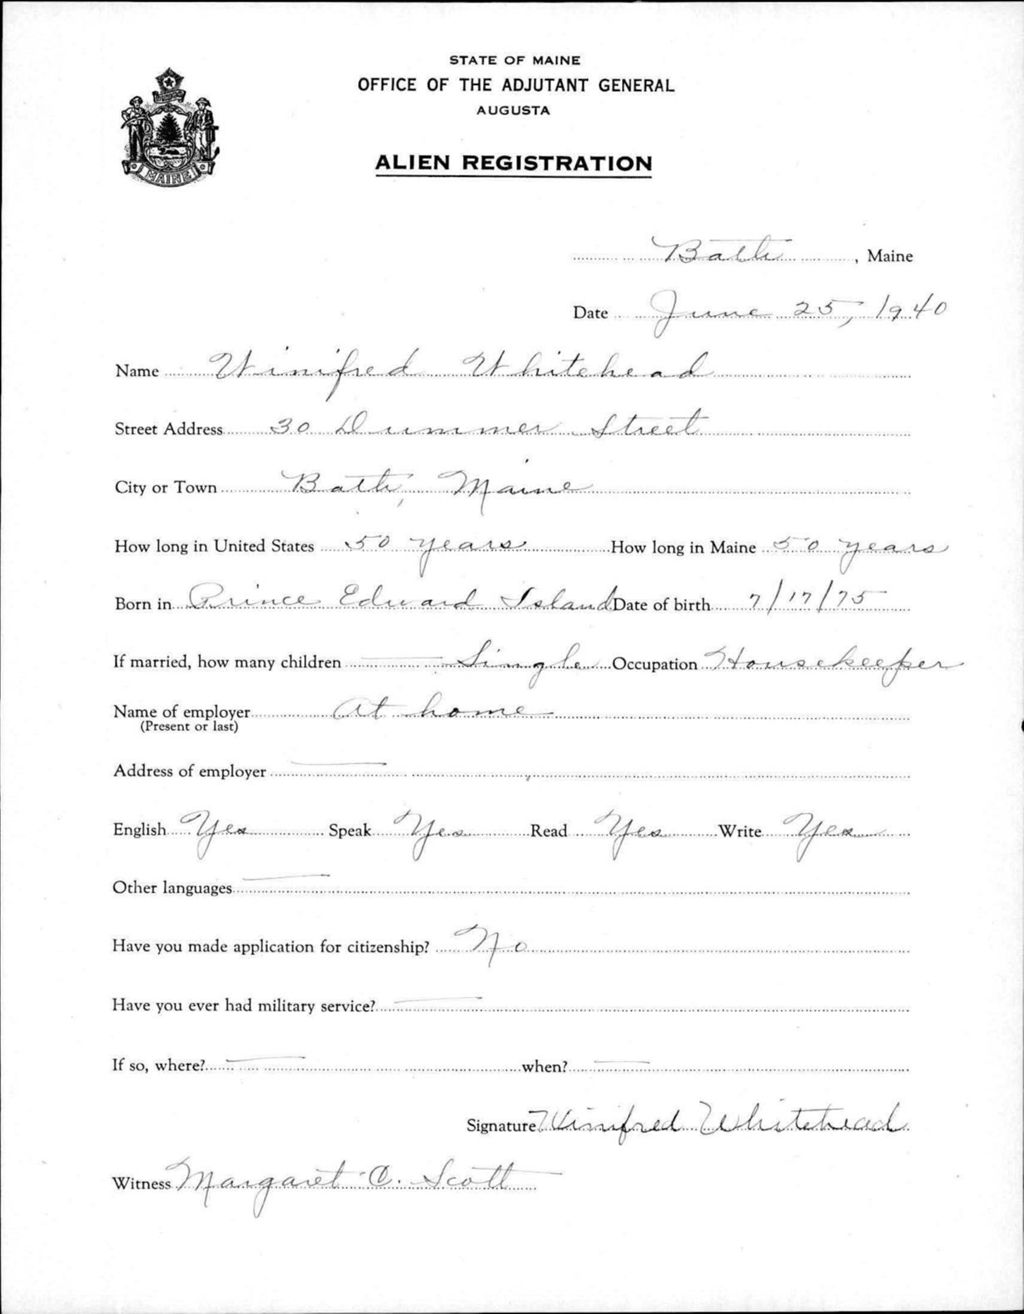 STATE OF MAINE
OFFICE OF THE ADJUTANT GENERAL
AUGUSTA
ALIEN REGISTRATION
MAINE
Bath, Maine
Date June 25, 1940
Name Winifred Whitehead
Street Address 30 Dummer Street
City or Town Bath, Maine
How long in United States 50 years How long in Maine 50 years
Born in Prince Edward Island Date of birth 7/17/75
If married, how many children — Single Occupation Housekeeper
Name of employer At home
(Present or last)
Address of employer —
English Yes Speak Yes Read Yes Write Yes
Other languages —
Have you made application for citizenship? No
Have you ever had military service? —
If so, where? — when? —
Signature Winifred Whitehead
Witness Margaret C. Scott